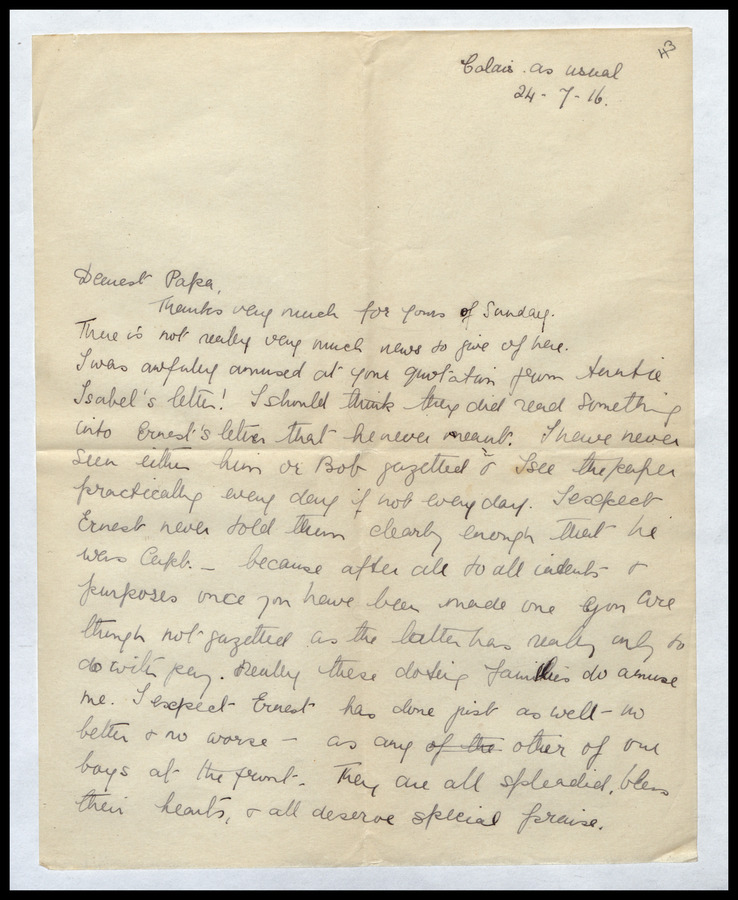 43
Calais. as usual
24 - 7 - 16.
Dearest Papa,
Thanks very much for yours of Sunday.
There is not really very much news to give of here.
I was awfully amused at your quotation from Auntie
Isabel's letter! I should think they did read something
into Ernest's letter that he never meant. I have never
seen either him or Bob gazetted & I see the paper
practically every day if not every day. I expect
Ernest never told them clearly enough that he
was Capt. - because after all to all intents &
purposes once you have been made one you are
though not gazetted as the latter has really only to
do with pay. Really these doting families do amuse
me. I expect Ernest has done just as well - no
better & no worse - as any of the other of our
boys at the front. They are all splendid, bless
their hearts, & all deserve special praise.